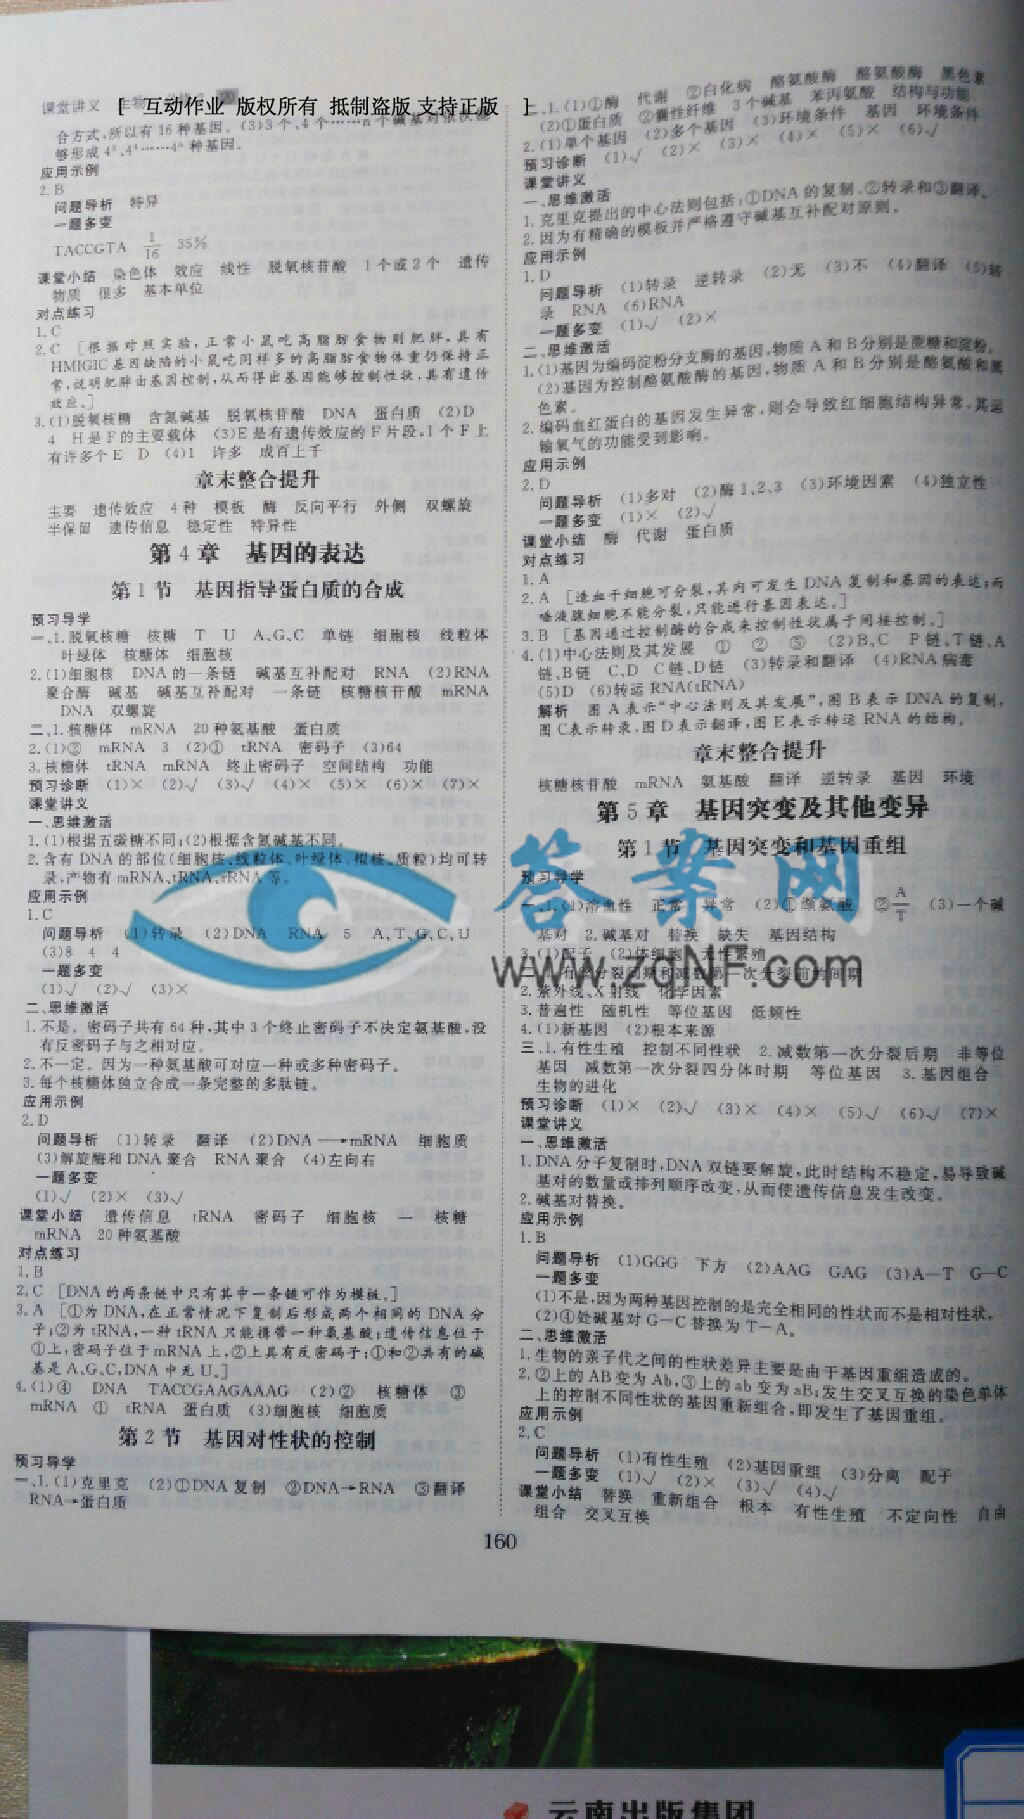 课堂讲义 生物
[ 互动作业 版权所有 抵制盗版 支持正版 ]
合方式,所以有16种基因。(3)3个、4个……n个碱基对依次能
够形成4³、4⁴……4ⁿ种基因。
应用示例
2.B
问题导析 特异
一题多变
TACCGTA 1/16 35%
课堂小结 染色体 效应 线性 脱氧核苷酸 1个或2个 遗传
物质 很多 基本单位
对点练习
1.C
2.C [根据对照实验,正常小鼠吃高脂肪食物则肥胖,具有
HMIGIC基因缺陷的小鼠吃同样多的高脂肪食物体重仍保持正
常,说明肥胖由基因控制,从而得出基因能够控制性状,具有遗传
效应。]
3.(1)脱氧核糖 含氮碱基 脱氧核苷酸 DNA 蛋白质 (2)D
4 H是F的主要载体 (3)E是有遗传效应的F片段,1个F上
有许多个E D (4)1 许多 成百上千
章末整合提升
主要 遗传效应 4种 模板 酶 反向平行 外侧 双螺旋
半保留 遗传信息 稳定性 特异性
第4章 基因的表达
第1节 基因指导蛋白质的合成
预习导学
一、1.脱氧核糖 核糖 T U A、G、C 单链 细胞核 线粒体
叶绿体 核糖体 细胞核
2.(1)细胞核 DNA的一条链 碱基互补配对 RNA (2)RNA
聚合酶 碱基 碱基互补配对 一条链 核糖核苷酸 mRNA
DNA 双螺旋
二、1.核糖体 mRNA 20种氨基酸 蛋白质
2.(1)② mRNA 3 (2)① tRNA 密码子 (3)64
3.核糖体 tRNA mRNA 终止密码子 空间结构 功能
预习诊断 (1)× (2)√ (3)√ (4)× (5)× (6)× (7)×
课堂讲义
一、思维激活
1.(1)根据五碳糖不同;(2)根据含氮碱基不同。
2.含有DNA的部位(细胞核、线粒体、叶绿体、拟核、质粒)均可转
录,产物有mRNA、tRNA、rRNA等。
应用示例
1.C
问题导析 (1)转录 (2)DNA RNA 5 A、T、G、C、U
(3)8 4 4
一题多变
(1)√ (2)√ (3)×
二、思维激活
1.不是。密码子共有64种,其中3个终止密码子不决定氨基酸,没
有反密码子与之相对应。
2.不一定。因为一种氨基酸可对应一种或多种密码子。
3.每个核糖体独立合成一条完整的多肽链。
应用示例
2.D
问题导析 (1)转录 翻译 (2)DNA→mRNA 细胞质
(3)解旋酶和DNA聚合 RNA聚合 (4)左向右
一题多变
(1)√ (2)× (3)√
课堂小结 遗传信息 tRNA 密码子 细胞核 一 核糖
mRNA 20种氨基酸
对点练习
1.B
2.C [DNA的两条链中只有其中一条链可作为模板。]
3.A [①为DNA,在正常情况下复制后形成两个相同的DNA分
子;②为tRNA,一种tRNA只能携带一种氨基酸;遗传信息位于
①上,密码子位于mRNA上,②上具有反密码子;①和②共有的碱
基是A、G、C,DNA中无U。]
4.(1)④ DNA TACCGAAGAAAG (2)② 核糖体 ③
mRNA ① tRNA 蛋白质 (3)细胞核 细胞质
第2节 基因对性状的控制
预习导学
一、1.(1)克里克 (2)①DNA复制 ②DNA→RNA ③翻译
RNA→蛋白质
二、1.(1)①酶 代谢 ②白化病 酪氨酸酶 酪氨酸酶 黑色素
(2)①蛋白质 ②囊性纤维 3个碱基 苯丙氨酸 结构与功能
2.(1)单个基因 (2)多个基因 (3)环境条件 基因 环境条件
预习诊断 (1)√ (2)× (3)× (4)× (5)× (6)√
课堂讲义
一、思维激活
1.克里克提出的中心法则包括:①DNA的复制、②转录和③翻译。
2.因为有精确的模板并严格遵守碱基互补配对原则。
应用示例
1.D
问题导析 (1)转录 逆转录 (2)无 (3)不 (4)翻译 (5)转
录 RNA (6)RNA
一题多变 (1)√ (2)×
二、思维激活
1.(1)基因为编码淀粉分支酶的基因,物质A和B分别是蔗糖和淀粉。
(2)基因为控制酪氨酸酶的基因,物质A和B分别是酪氨酸和黑
色素。
2.编码血红蛋白的基因发生异常,则会导致红细胞结构异常,其运
输氧气的功能受到影响。
应用示例
2.D
问题导析 (1)多对 (2)酶1、2、3 (3)环境因素 (4)独立性
一题多变 (1)× (2)√
课堂小结 酶 代谢 蛋白质
对点练习
1.A
2.A [造血干细胞可分裂,其内可发生DNA复制和基因的表达;而
唾液腺细胞不能分裂,只能进行基因表达。]
3.B [基因通过控制酶的合成来控制性状属于间接控制。]
4.(1)中心法则及其发展 ① ② ⑤ (2)B、C P链、T链、A
链、B链 C、D C链、D链 (3)转录和翻译 (4)RNA病毒
(5)D (6)转运RNA(tRNA)
解析 图A表示“中心法则及其发展”,图B表示DNA的复制,
图C表示转录,图D表示翻译,图E表示转运RNA的结构。
章末整合提升
核糖核苷酸 mRNA 氨基酸 翻译 逆转录 基因 环境
第5章 基因突变及其他变异
第1节 基因突变和基因重组
预习导学
一、1.(1)溶血性 正常 异常 (2)①缬氨酸 ②A/T (3)一个碱
基对 2.碱基对 替换 缺失 基因结构
3.(1)配子 (2)体细胞 无性繁殖
二、1.有丝分裂间期和减数第一次分裂前的间期
2.紫外线、X射线 化学因素
3.普遍性 随机性 等位基因 低频性
4.(1)新基因 (2)根本来源
三、1.有性生殖 控制不同性状 2.减数第一次分裂后期 非等位
基因 减数第一次分裂四分体时期 等位基因 3.基因组合
生物的进化
预习诊断 (1)× (2)√ (3)× (4)× (5)√ (6)√ (7)×
课堂讲义
一、思维激活
1.DNA分子复制时,DNA双链要解旋,此时结构不稳定,易导致碱
基对的数量或排列顺序改变,从而使遗传信息发生改变。
2.碱基对替换。
应用示例
1.B
问题导析 (1)GGG 下方 (2)AAG GAG (3)A—T G—C
一题多变
(1)不是,因为两种基因控制的是完全相同的性状而不是相对性状。
(2)④处碱基对G—C替换为T—A。
二、思维激活
1.生物的亲子代之间的性状差异主要是由于基因重组造成的。
2.②上的AB变为Ab,③上的ab变为aB;发生交叉互换的染色单体
上的控制不同性状的基因重新组合,即发生了基因重组。
应用示例
2.C
问题导析 (1)有性生殖 (2)基因重组 (3)分离 配子
一题多变 (1)√ (2)× (3)√ (4)√
课堂小结 替换 重新组合 根本 有性生殖 不定向性 自由
组合 交叉互换
160
答案网
www.zqNF.com
云南出版集团